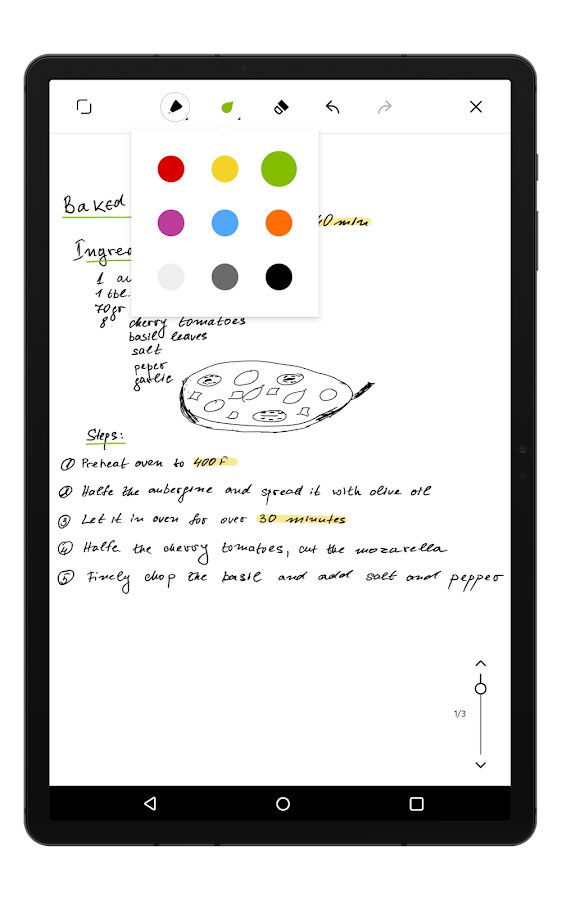 Baked
40 min
Ingre
1 au
1 tbl.
70gr
8 cherry tomatoes
basil leaves
salt
peper
garlic
Steps:
1 Preheat oven to 400 F
2 Halfe the aubergine and spread it with olive oil
3 Let it in oven for over 30 minutes
4 Halfe the cherry tomatoes, cut the mozarella
5 Finely chop the basil and add salt and pepper
1/3